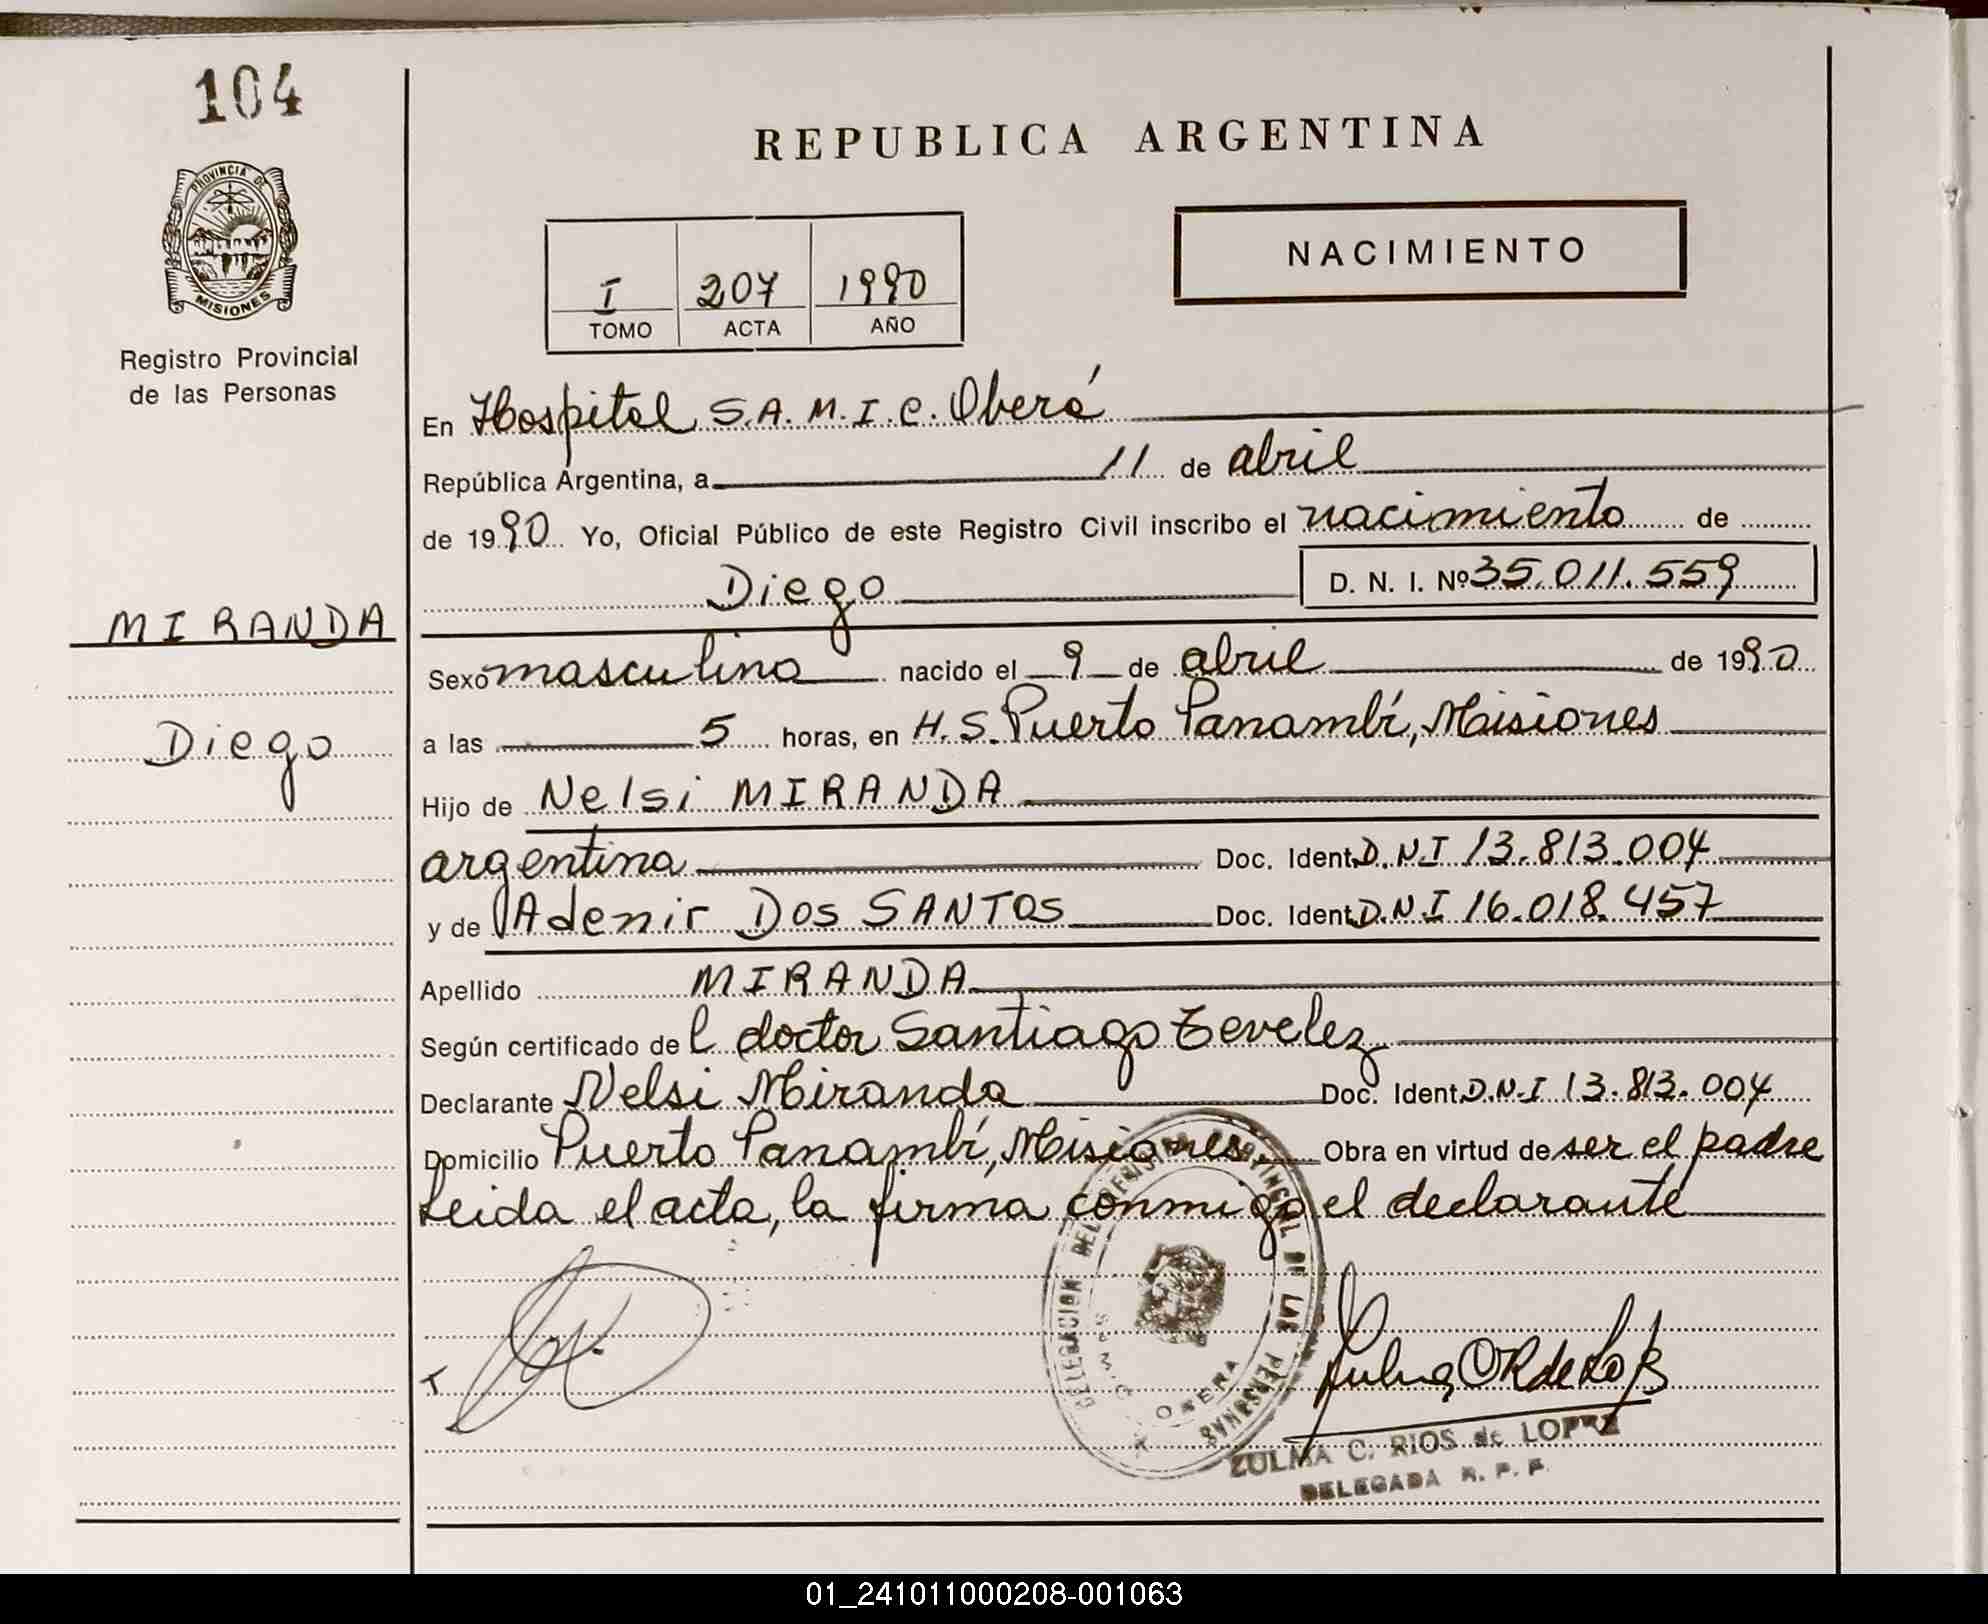 104
PROVINCIA DE
MISIONES
Registro Provincial
de las Personas
MIRANDA
Diego
REPUBLICA ARGENTINA
I 207 1990
TOMO ACTA AÑO
NACIMIENTO
En Hospital S.A.M.I.C. Oberá
República Argentina, a 11 de abril
de 1990 Yo, Oficial Público de este Registro Civil inscribo el nacimiento de
Diego D. N. I. Nº 35.011.559
Sexo masculino nacido el 9 de abril de 1990
a las 5 horas, en H.S. Puerto Panambí, Misiones
Hijo de Nelsi MIRANDA
argentina Doc. Ident. D.N.I 13.813.004
y de Adenir Dos SANTOS Doc. Ident. D.N.I 16.018.457
Apellido MIRANDA
Según certificado del doctor Santiago Tevelez
Declarante Nelsi Miranda Doc. Ident. D.N.I 13.813.004
Domicilio Puerto Panambí, Misiones Obra en virtud de ser el padre
Leida el acta, la firma conmigo el declarante
DELEGACION DEL REGISTRO PROVINCIAL DE LAS PERSONAS
OBERA
ZULMA C. RIOS de LOPEZ
DELEGADA R. P. P.
01_241011000208-001063